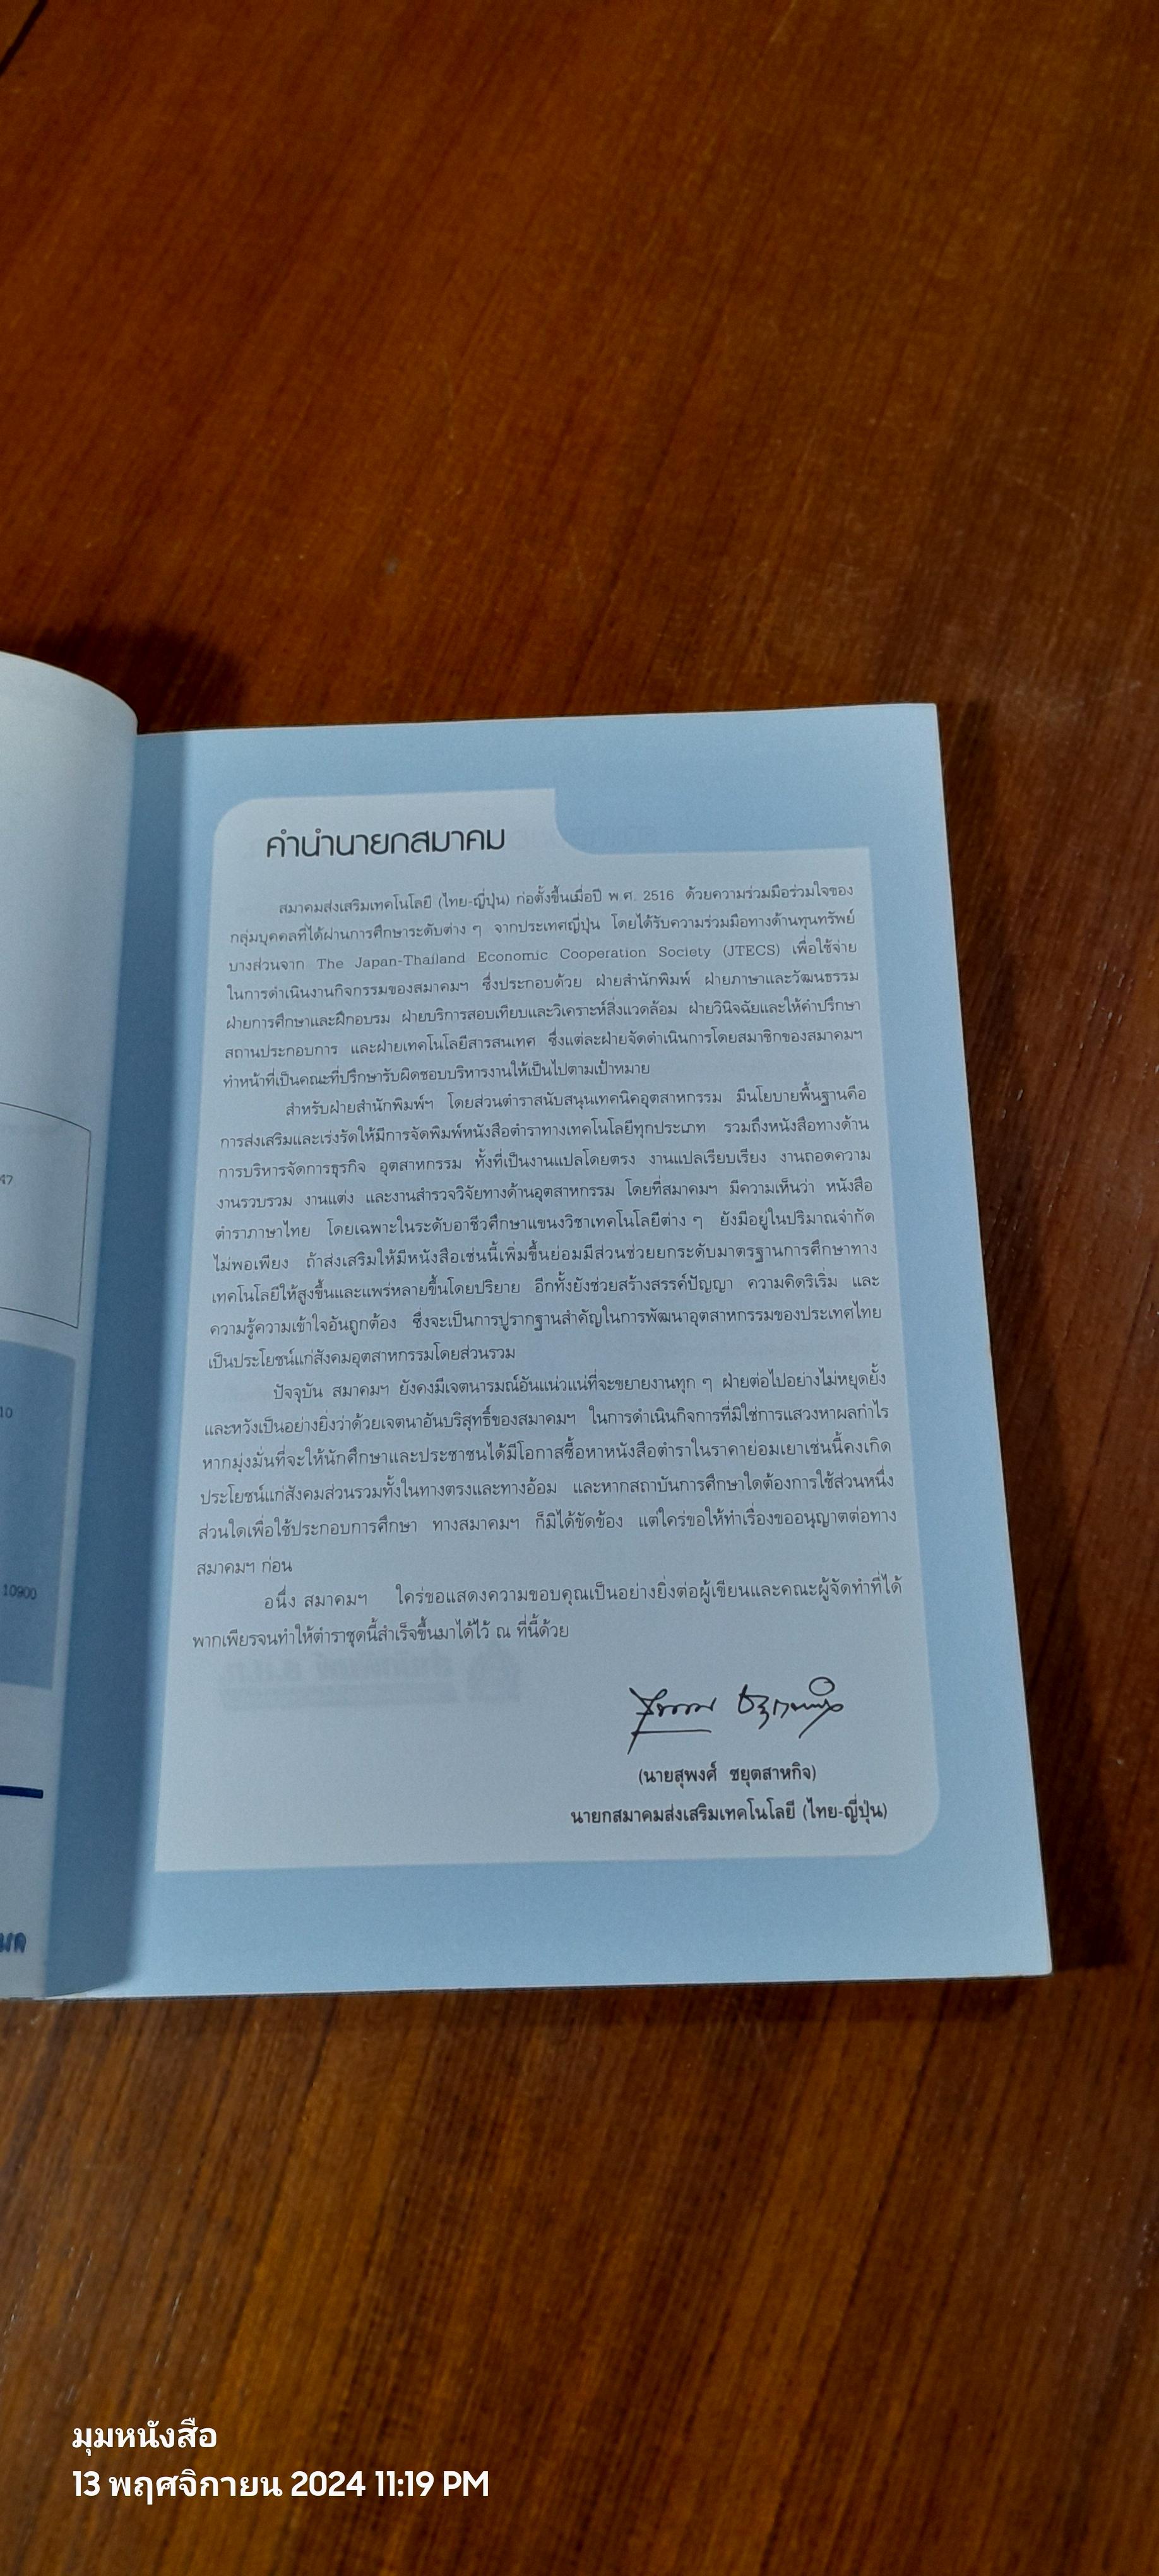 คำนำนายกสมาคม
สมาคมส่งเสริมเทคโนโลยี (ไทย-ญี่ปุ่น) ก่อตั้งขึ้นเมื่อปี พ.ศ. 2516 ด้วยความร่วมมือร่วมใจของ
กลุ่มบุคคลที่ได้ผ่านการศึกษาระดับต่าง ๆ จากประเทศญี่ปุ่น โดยได้รับความร่วมมือทางด้านทุนทรัพย์
บางส่วนจาก The Japan-Thailand Economic Cooperation Society (JTECS) เพื่อใช้จ่าย
ในการดำเนินงานกิจกรรมของสมาคมฯ ซึ่งประกอบด้วย ฝ่ายสำนักพิมพ์ ฝ่ายภาษาและวัฒนธรรม
ฝ่ายการศึกษาและฝึกอบรม ฝ่ายบริการสอบเทียบและวิเคราะห์สิ่งแวดล้อม ฝ่ายวินิจฉัยและให้คำปรึกษา
สถานประกอบการ และฝ่ายเทคโนโลยีสารสนเทศ ซึ่งแต่ละฝ่ายจัดดำเนินการโดยสมาชิกของสมาคมฯ
ทำหน้าที่เป็นคณะที่ปรึกษารับผิดชอบบริหารงานให้เป็นไปตามเป้าหมาย
สำหรับฝ่ายสำนักพิมพ์ฯ โดยส่วนตำราสนับสนุนเทคนิคอุตสาหกรรม มีนโยบายพื้นฐานคือ
การส่งเสริมและเร่งรัดให้มีการจัดพิมพ์หนังสือตำราทางเทคโนโลยีทุกประเภท รวมถึงหนังสือทางด้าน
การบริหารจัดการธุรกิจ อุตสาหกรรม ทั้งที่เป็นงานแปลโดยตรง งานแปลเรียบเรียง งานถอดความ
งานรวบรวม งานแต่ง และงานสำรวจวิจัยทางด้านอุตสาหกรรม โดยที่สมาคมฯ มีความเห็นว่า หนังสือ
ตำราภาษาไทย โดยเฉพาะในระดับอาชีวศึกษาแขนงวิชาเทคโนโลยีต่าง ๆ ยังมีอยู่ในปริมาณจำกัด
ไม่พอเพียง ถ้าส่งเสริมให้มีหนังสือเช่นนี้เพิ่มขึ้นย่อมมีส่วนช่วยยกระดับมาตรฐานการศึกษาทาง
เทคโนโลยีให้สูงขึ้นและแพร่หลายขึ้นโดยปริยาย อีกทั้งยังช่วยสร้างสรรค์ปัญญา ความคิดริเริ่ม และ
ความรู้ความเข้าใจอันถูกต้อง ซึ่งจะเป็นการปูรากฐานสำคัญในการพัฒนาอุตสาหกรรมของประเทศไทย
เป็นประโยชน์แก่สังคมอุตสาหกรรมโดยส่วนรวม
ปัจจุบัน สมาคมฯ ยังคงมีเจตนารมณ์อันแน่วแน่ที่จะขยายงานทุก ๆ ฝ่ายต่อไปอย่างไม่หยุดยั้ง
และหวังเป็นอย่างยิ่งว่าด้วยเจตนาอันบริสุทธิ์ของสมาคมฯ ในการดำเนินกิจการที่มิใช่การแสวงหาผลกำไร
หากมุ่งมั่นที่จะให้นักศึกษาและประชาชนได้มีโอกาสซื้อหาหนังสือตำราในราคาย่อมเยาเช่นนี้คงเกิด
ประโยชน์แก่สังคมส่วนรวมทั้งในทางตรงและทางอ้อม และหากสถาบันการศึกษาใดต้องการใช้ส่วนหนึ่ง
ส่วนใดเพื่อใช้ประกอบการศึกษา ทางสมาคมฯ ก็มิได้ขัดข้อง แต่ใคร่ขอให้ทำเรื่องขออนุญาตต่อทาง
สมาคมฯ ก่อน
อนึ่ง สมาคมฯ ใคร่ขอแสดงความขอบคุณเป็นอย่างยิ่งต่อผู้เขียนและคณะผู้จัดทำที่ได้
พากเพียรจนทำให้ตำราชุดนี้สำเร็จขึ้นมาได้ไว้ ณ ที่นี้ด้วย
(นายสุพงศ์ ชยุตสาหกิจ)
นายกสมาคมส่งเสริมเทคโนโลยี (ไทย-ญี่ปุ่น)
47
10
10900
มุมหนังสือ
13 พฤศจิกายน 2024 11:19 PM